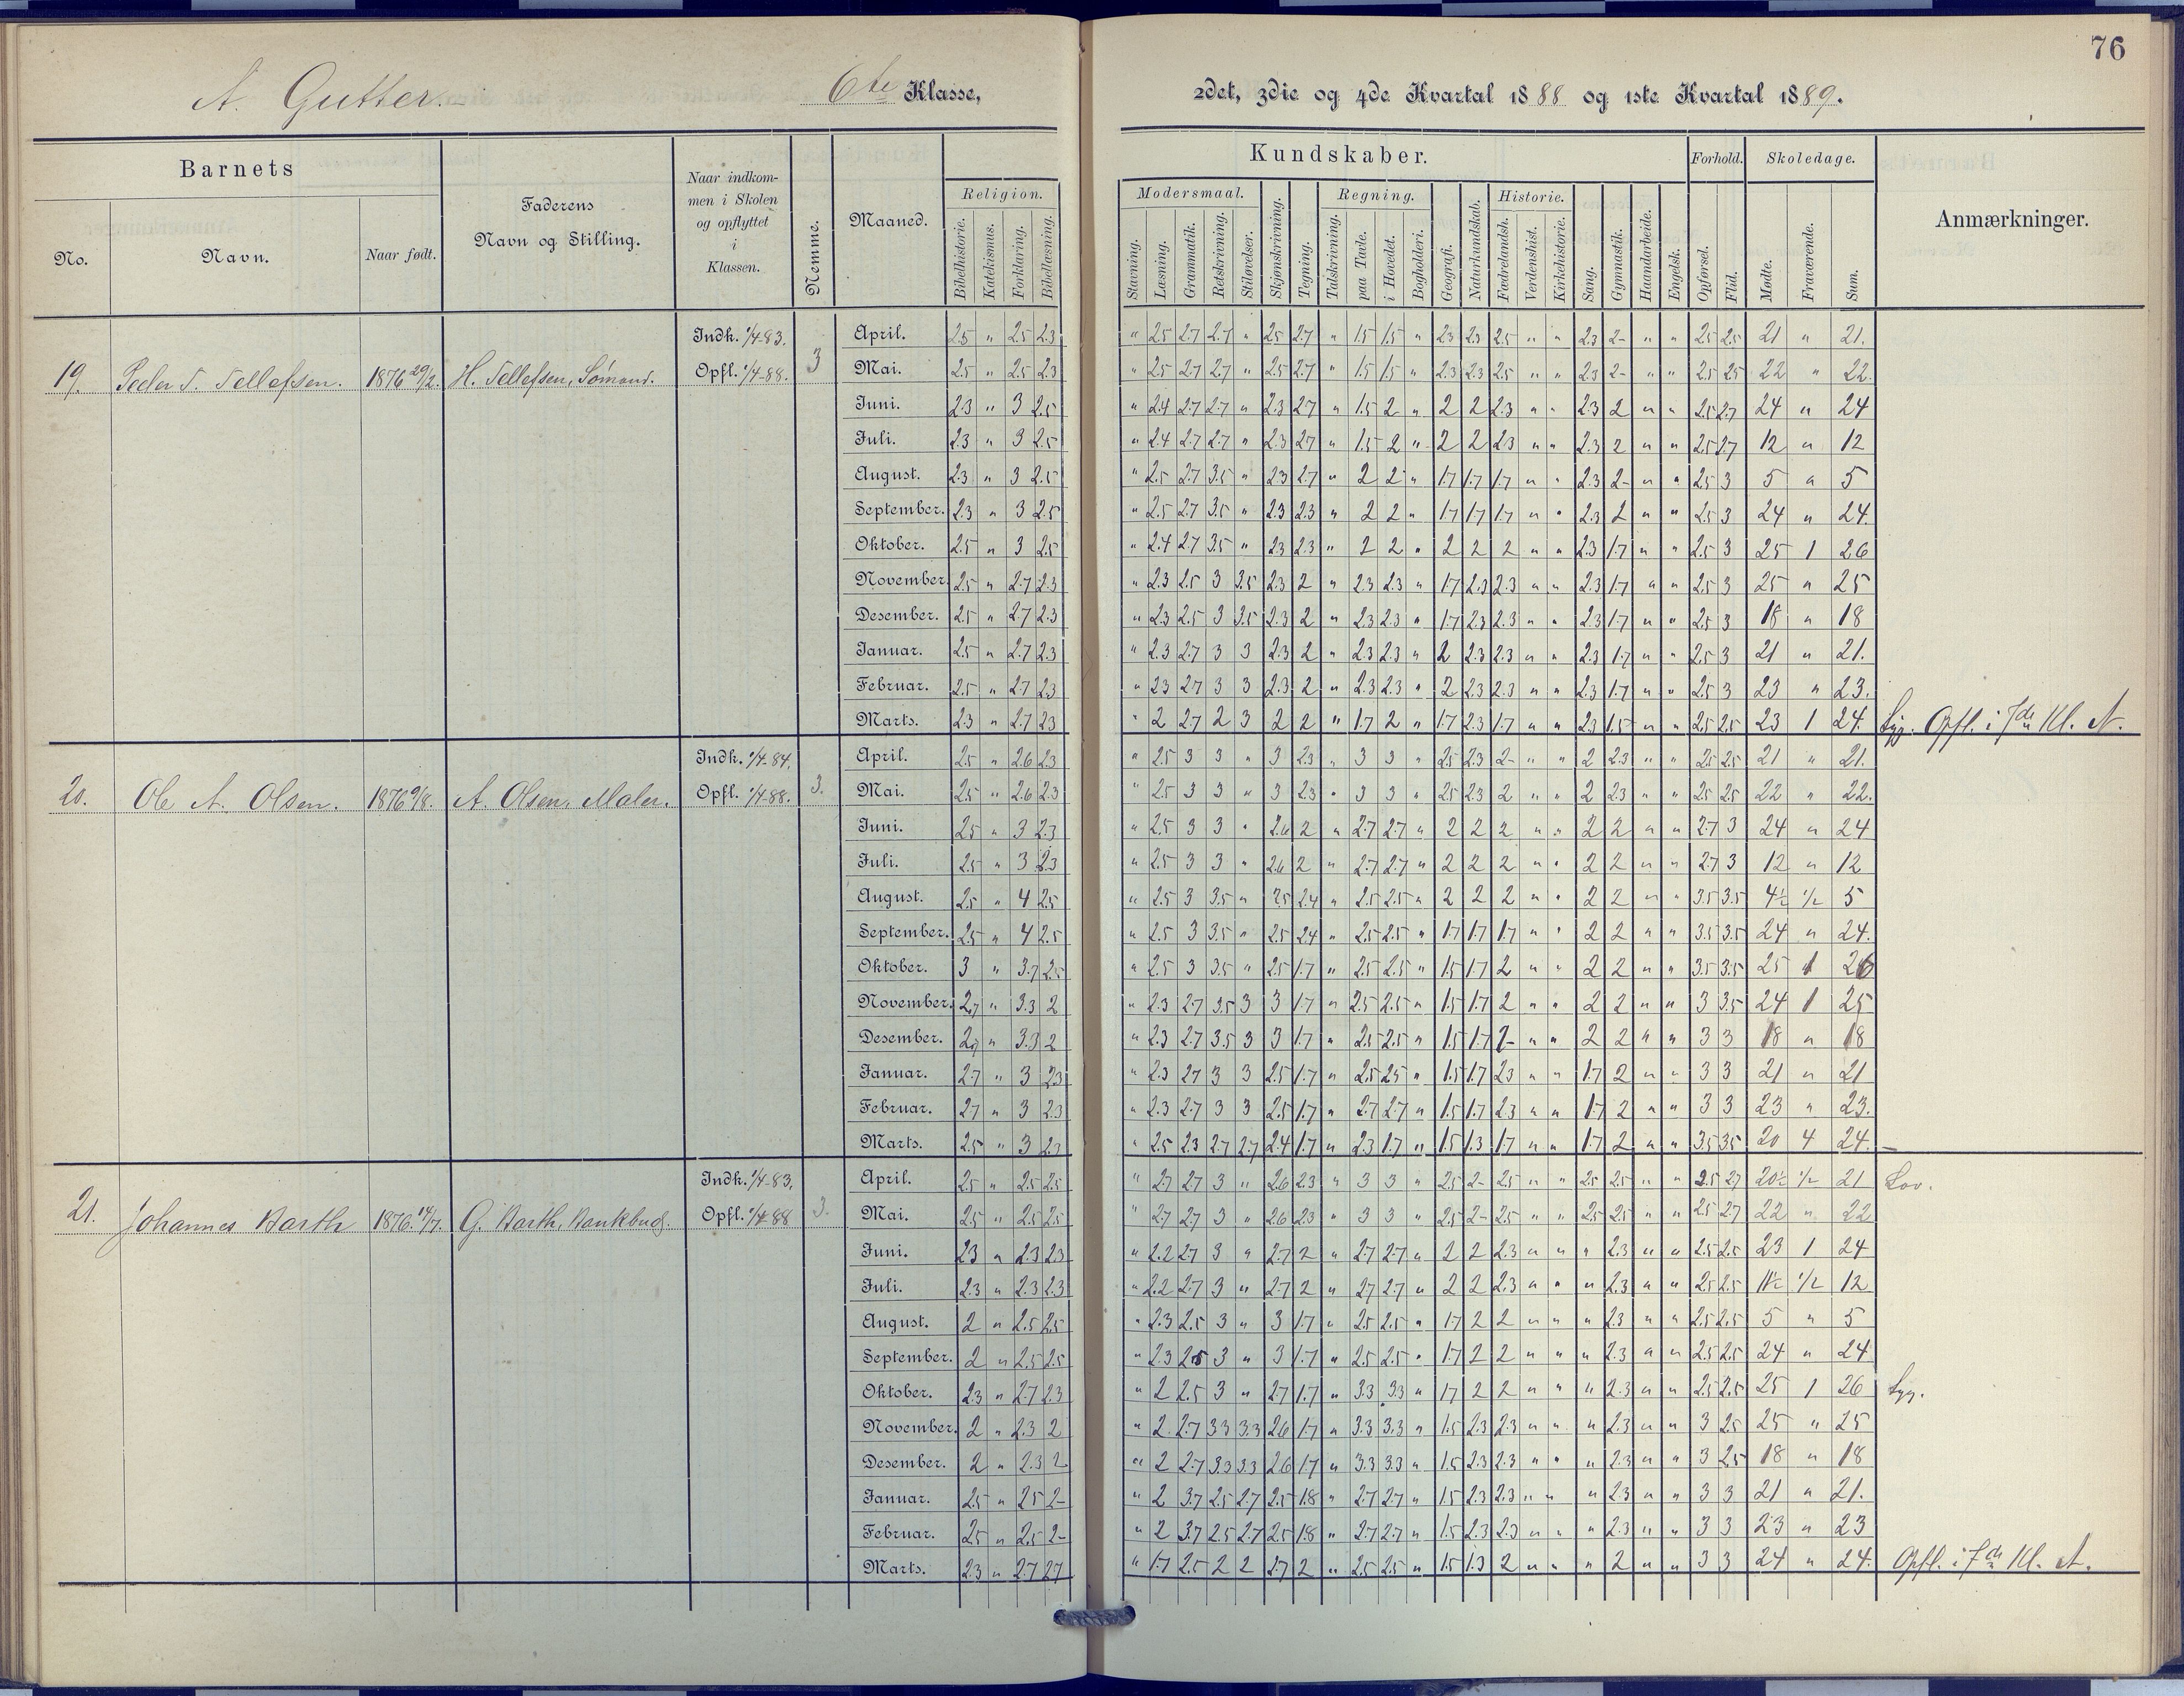 76
A. Gutter. 6te Klasse, 2det, 3die og 4de Kvartal 1888 og 1ste Kvartal 1889.
Barnets
No. Navn. Naar født.
Faderens Navn og Stilling.
Naar indkom-
men i Skolen
og opflyttet
i
Klassen.
Nemme.
Maaned.
Kundskaber.
Religion. Modersmaal. Regning. Historie. Forhold. Skoledage.
Bibelhistorie. Katekismus. Forklaring. Bibellæsning. Stavning. Læsning. Grammatik. Retskrivning. Stiløvelser. Skjønskrivning. Tegning. Talskrivning. paa Tavle. i Hovedet. Bogholderi. Geografi. Naturkundskab. Fædrelandsh. Verdenshist. Kirkehistorie. Sang. Gymnastik. Haandarbeide. Engelsk. Opførsel. Flid. Mødte. Fraværende. Sum.
Anmærkninger.
19. Peder T. Tellefsen. 1876 29/2. H. Tellefsen, Sømand. Indk. 1/4-83. Opfl. 1/4-88. 3
April. 2.5 " 2.5 2.3 " 2.5 2.7 2.7 " 2.5 2.7 " 1.5 1.5 " 2.3 2.3 2.5 " " 2.3 2- " " 2.5 2.5 21 " 21.
Mai. 2.5 " 2.5 2.3 " 2.5 2.7 2.7 " 2.5 2.7 " 1.5 1.5 " 2.3 2.3 2.5 " " 2.3 2- " " 2.5 2.5 22 " 22.
Juni. 2.3 " 3 2.5 " 2.4 2.7 2.7 " 2.3 2.7 " 1.5 2 " 2 2 2.3 " " 2.3 2 " " 2.5 2.7 24 " 24
Juli. 2.3 " 3 2.5 " 2.4 2.7 2.7 " 2.3 2.7 " 1.5 2 " 2 2 2.3 " " 2.3 2 " " 2.5 2.7 12 " 12
August. 2.3 " 3 2.5 " 2.5 2.7 3.5 " 2.3 2.7 " 2 2 " 1.7 1.7 1.7 " " 2.3 2- " " 2.5 3 5 " 5
September. 2.3 " 3 2.5 " 2.5 2.7 3.5 " 2.3 2.3 " 2 2 " 1.7 1.7 1.7 " " 2.3 2 " " 2.5 3 24 " 24.
Oktober. 2.5 " 3 2.5 " 2.4 2.7 3.5 " 2.3 2.3 " 2 2 " 2 2 2 " " 2.3 1.7 " " 2.5 3 25 1 26
November. 2.5 " 2.7 2.3 " 2.3 2.5 3 3.5 2.3 2 " 2.3 2.3 " 1.7 2.3 2.3 " " 2.3 1.7 " " 2.5 3 25 " 25
Desember. 2.5 " 2.7 2.3 " 2.3 2.5 3 3.5 2.3 2 " 2.3 2.3 " 1.7 2.3 2.3 " " 2.3 1.7 " " 2.5 3 18 " 18
Januar. 2.5 " 2.7 2.3 " 2.3 2.7 3 3 2.3 2 " 2.3 2.3 " 2 2.3 2.3 " " 2.3 1.7 " " 2.5 3 21 " 21.
Februar. 2.5 " 2.7 2.3 " 2.3 2.7 3 3 2.3 2 " 2.3 2.3 " 2 2.3 2.3 " " 2.3 1.7 " " 2.5 3 23 " 23.
Marts. 2.3 " 2.7 2.3 " 2 2.7 2 3 2 2 " 1.7 2 " 1.7 2.3 1.7 " " 2.3 1.5 " " 2.5 2.5 23 1 24. Syg. Opfl. i 7de Kl. A.
20. Ole A. Olsen. 1876 9/8. A. Olsen, Maler. Indk. 1/4-84. Opfl. 1/4-88. 3.
April. 2.5 " 2.6 2.3 " 2.5 3 3 " 3 2.3 " 3 3 " 2.5 2.3 2- " " 2 2.3 " " 2.5 2.5 21 " 21.
Mai. 2.5 " 2.6 2.3 " 2.5 3 3 " 3 2.3 " 3 3 " 2.5 2.3 2 " " 2 2.3 " " 2.5 2.5 22 " 22.
Juni. 2.5 " 3 2.3 " 2.5 3 3 " 2.6 2 " 2.7 2.7 " 2 2 2 " " 2 2 " " 2.7 3 24 " 24
Juli. 2.5 " 3 2.3 " 2.5 3 3 " 2.6 2 " 2.7 2.7 " 2 2 2 " " 2 2 " " 2.7 3 12 " 12
August. 2.5 " 4 2.5 " 2.5 3 3.5 " 2.5 2.4 " 2.5 2.5 " 2 2 2 " " 2 2 " " 3.5 3.5 4½ ½ 5
September. 2.5 " 4 2.5 " 2.5 3 3.5 " 2.5 2.4 " 2.5 2.5 " 1.7 1.7 1.7 " " 2 2 " " 3.5 3.5 24 " 24.
Oktober. 3 " 3.7 2.5 " 2.5 3 3.5 " 2.5 1.7 " 2.5 2.5 " 1.5 1.7 2 " " 2 2 " " 3.5 3.5 25 1 26
November. 2.7 " 3.3 2 " 2.3 2.7 3.5 3 3 1.7 " 2.5 2.5 " 1.5 1.7 2 " " 2 2 " " 3 3.5 24 1 25
Desember. 2.7 " 3.3 2 " 2.3 2.7 3.5 3 3 1.7 " 2.5 2.5 " 1.5 1.7 2- " " 2 2 " " 3 3 18 " 18
Januar. 2.7 " 3 2.3 " 2.3 2.7 3 3 2.5 1.7 " 2.5 2.5 " 1.5 1.7 2.3 " " 1.7 2 " " 3 3 21 " 21
Februar. 2.7 " 3 2.3 " 2.3 2.7 3 3 2.5 1.7 " 2.7 2.7 " 1.5 1.7 2.3 " " 1.7 2 " " 3 3 23 " 23.
Marts. 2.5 " 3 2.3 " 2.5 2.3 2.7 2.7 2.4 1.7 " 2.3 1.7 " 1.5 1.3 1.7 " " 1.7 2 " " 3.5 3.5 20 4 24.
21. Johannes Barth 1876. 14/7. G. Barth, Bankbud. Indk. 1/4-83. Opfl. 1/4-88 3.
April. 2.5 " 2.5 2.5 " 2.7 2.7 3 " 2.6 2.3 " 3 3 " 2.5 2- 2.5 " " 2.5 2.5 " " 2.5 2.7 20½ ½ 21 Lov.
Mai. 2.5 " 2.5 2.5 " 2.7 2.7 3 " 2.6 2.3 " 3 3 " 2.5 2- 2.5 " " 2.5 2.5 " " 2.5 2.7 22 " 22
Juni. 2.3 " 2.3 2.3 " 2.2 2.7 3 " 2.7 2 " 2.7 2.7 " 2 2 2.3 " " " 2.3 " " 2.5 2.5 23 1 24
Juli. 2.3 " 2.3 2.3 " 2.2 2.7 3 " 2.7 2 " 2.7 2.7 " 2 2 2.3 " " " 2.3 " " 2.5 2.5 11½ ½ 12
August. 2 " 2.5 2.5 " 2.3 2.5 3 " 3 1.7 " 2.5 2.5 " 1.7 2 2 " " " 2.3 " " 2.5 2.5 5 " 5
September. 2 " 2.5 2.5 " 2.3 2.5 3 " 3 1.7 " 2.5 2.5 " 1.7 2 2 " " " 2.3 " " 2.5 2.5 24 " 24
Oktober. 2.3 " 2.7 2.3 " 2 2.5 3 " 2.7 1.7 " 3.3 3.3 " 1.7 2 2 " " " 2.3 " " 2.5 2.5 25 1 26 Syg.
November. 2 " 2.3 2 " 2 2.7 3.3 3.3 2.6 1.7 " 3.3 3.3 " 1.5 2.3 2.3 " " " 2.3 " " 3 2.5 25 " 25
Desember. 2 " 2.3 2 " 2 2.7 3.3 3.3 2.6 1.7 " 3.3 3.3 " 1.5 2.3 2.3 " " " 2.3 " " 3 2.5 18 " 18
Januar. 2.5 " 2.5 2- " 2 3.7 2.5 2.7 2.5 1.8 " 2.7 2.7 " 1.5 2.3 2.3 " " " 2.3 " " 3 3 21 " 21.
Februar. 2.5 " 2.5 2- " 2 3.7 2.5 2.7 2.5 1.8 " 2.7 2.7 " 1.5 2.3 2.3 " " " 2.3 " " 3 3 23 " 23
Marts. 2.3 " 2.7 2.7 " 1.7 2.5 2 2 2.7 2 " 2.5 2.5 " 1.5 1.3 2 " " " 2 " " 3 3 24 " 24. Opfl. i 7de Kl. A.